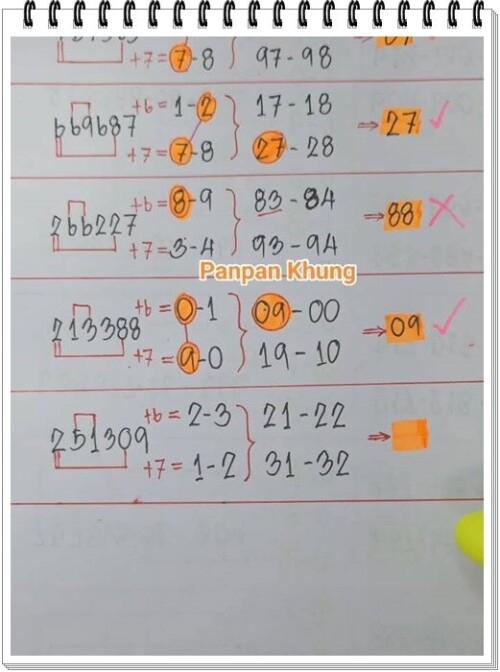 +7 = 7-8 97-98
+6 = 1-2 17-18
669687 ⇒ 27 ✓
+7 = 7-8 27-28
+6 = 8-9 83-84
266227 ⇒ 88 ✗
+7 = 3-4 93-94
Panpan Khung
+6 = 0-1 09-00
213388 ⇒ 09 ✓
+7 = 9-0 19-10
+6 = 2-3 21-22
251309 ⇒
+7 = 1-2 31-32